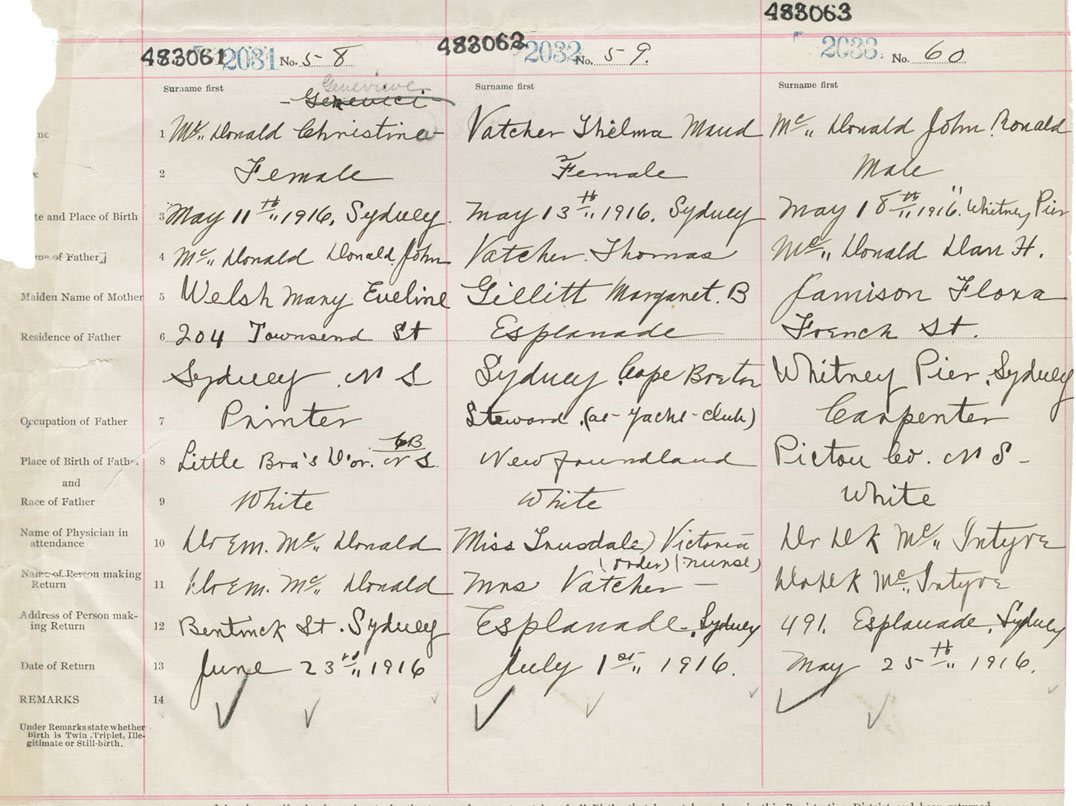 483061 2031 No. 58
483062 2032 No. 59.
483063 2033 No. 60
Surname first
Surname first
Surname first
Genevieve
1 Mc,, Donald Christina
Vatcher Thelma Maud
Mc,, Donald John Ronald
2 Female
Female
Male
te and Place of Birth 3 May 11th,, 1916, Sydney
May 13th,, 1916, Sydney
May 18th,, 1916. Whitney Pier
me of Father] 4 Mc,, Donald Donald John
Vatcher Thomas
Mc,, Donald Dan H.
Maiden Name of Mother 5 Welsh Mary Eveline
Gillitt Margaret. B
Jamison Flora
Residence of Father 6 204 Townsend St
Esplanade
French St.
Sydney N S
Sydney Cape Breton
Whitney Pier, Sydney
Occupation of Father 7 Printer
Steward (at-Yacht-club)
Carpenter
Place of Birth of Father 8 Little Bra's D'or. CB N S.
Newfoundland
Pictou Co. N S-
and
Race of Father 9 White
White
White
Name of Physician in
attendance 10 Dr Em. Mc,, Donald
Miss Trusdale) Victoria
(order) (nurse)
Dr D K Mc,, Intyre
Name of Person making
Return 11 Dr Em. Mc,, Donald
Mrs Vatcher -
Dr D K Mc,, Intyre
Address of Person mak-
ing Return 12 Bentinck St. Sydney
Esplanade, Sydney
491. Esplanade, Sydney
Date of Return 13 June 23rd,, 1916
July 1st,, 1916.
May 25th,, 1916.
REMARKS 14
Under Remarks state whether
Birth is Twin, Triplet, Ille-
gitimate or Still-birth.